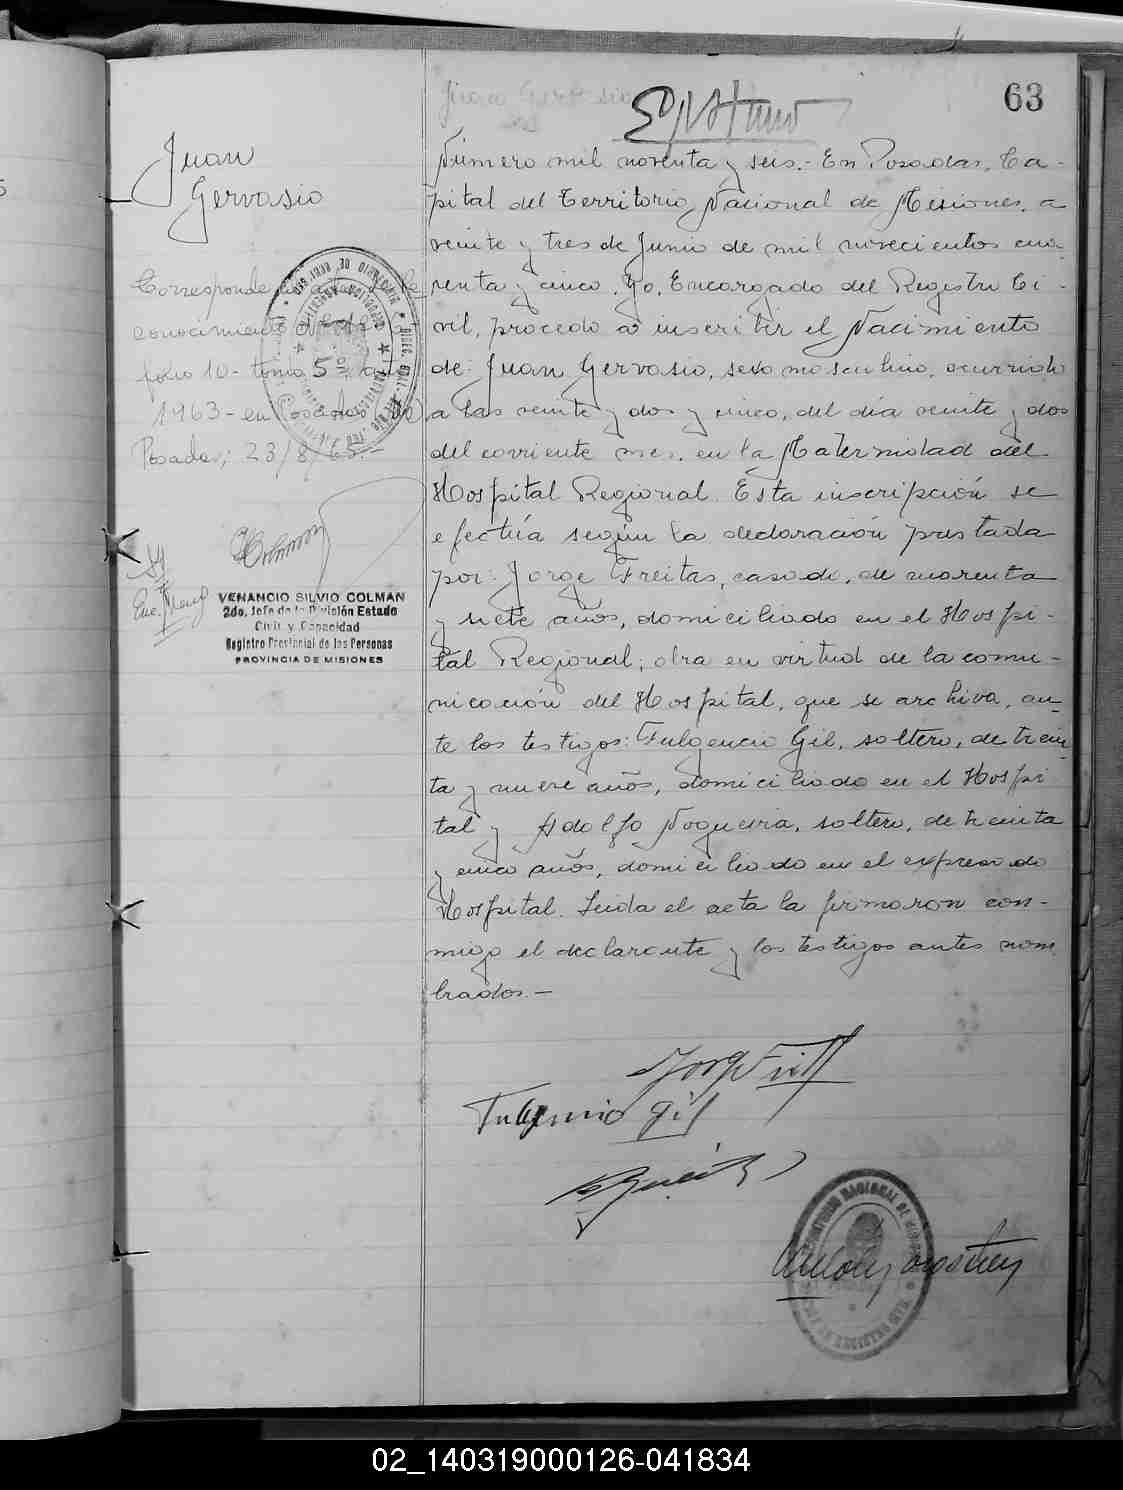 63
Juan
Gervasio
Número mil noventa y seis.- En Posadas, Ca-
pital del Territorio Nacional de Misiones, a
veinte y tres de Junio de mil novecientos cua-
renta y cinco. Yo, Encargado del Registro Ci-
vil, procedo a inscribir el Nacimiento
de: Juan Gervasio, sexo masculino, ocurrido
a las veinte y dos y cinco, del día veinte y dos
del corriente mes, en la Maternidad del
Hospital Regional. Esta inscripción se
efectúa según la declaración prestada
por: Jorge Freitas, casado, de cuarenta
y siete años, domiciliado en el Hospi-
tal Regional; obra en virtud de la comu-
nicación del Hospital, que se archiva, an-
te los testigos: Fulgencio Gil, soltero, de trein-
ta y nueve años, domiciliado en el Hospi
tal y Adolfo Nogueira, soltero, de treinta
y cinco años, domiciliado en el expresado
Hospital. Leida el acta la firmaron con-
migo el declarante y los testigos antes nom
brados.-
Corresponde
conocimiento
folio 10- tomo 5º
1963- en Posadas
Posadas, 23/8/63.-
VENANCIO SILVIO COLMAN
2do. Jefe de la División Estado
Civil y Capacidad
Registro Provincial de las Personas
PROVINCIA DE MISIONES
Fulgencio Gil
02_140319000126-041834